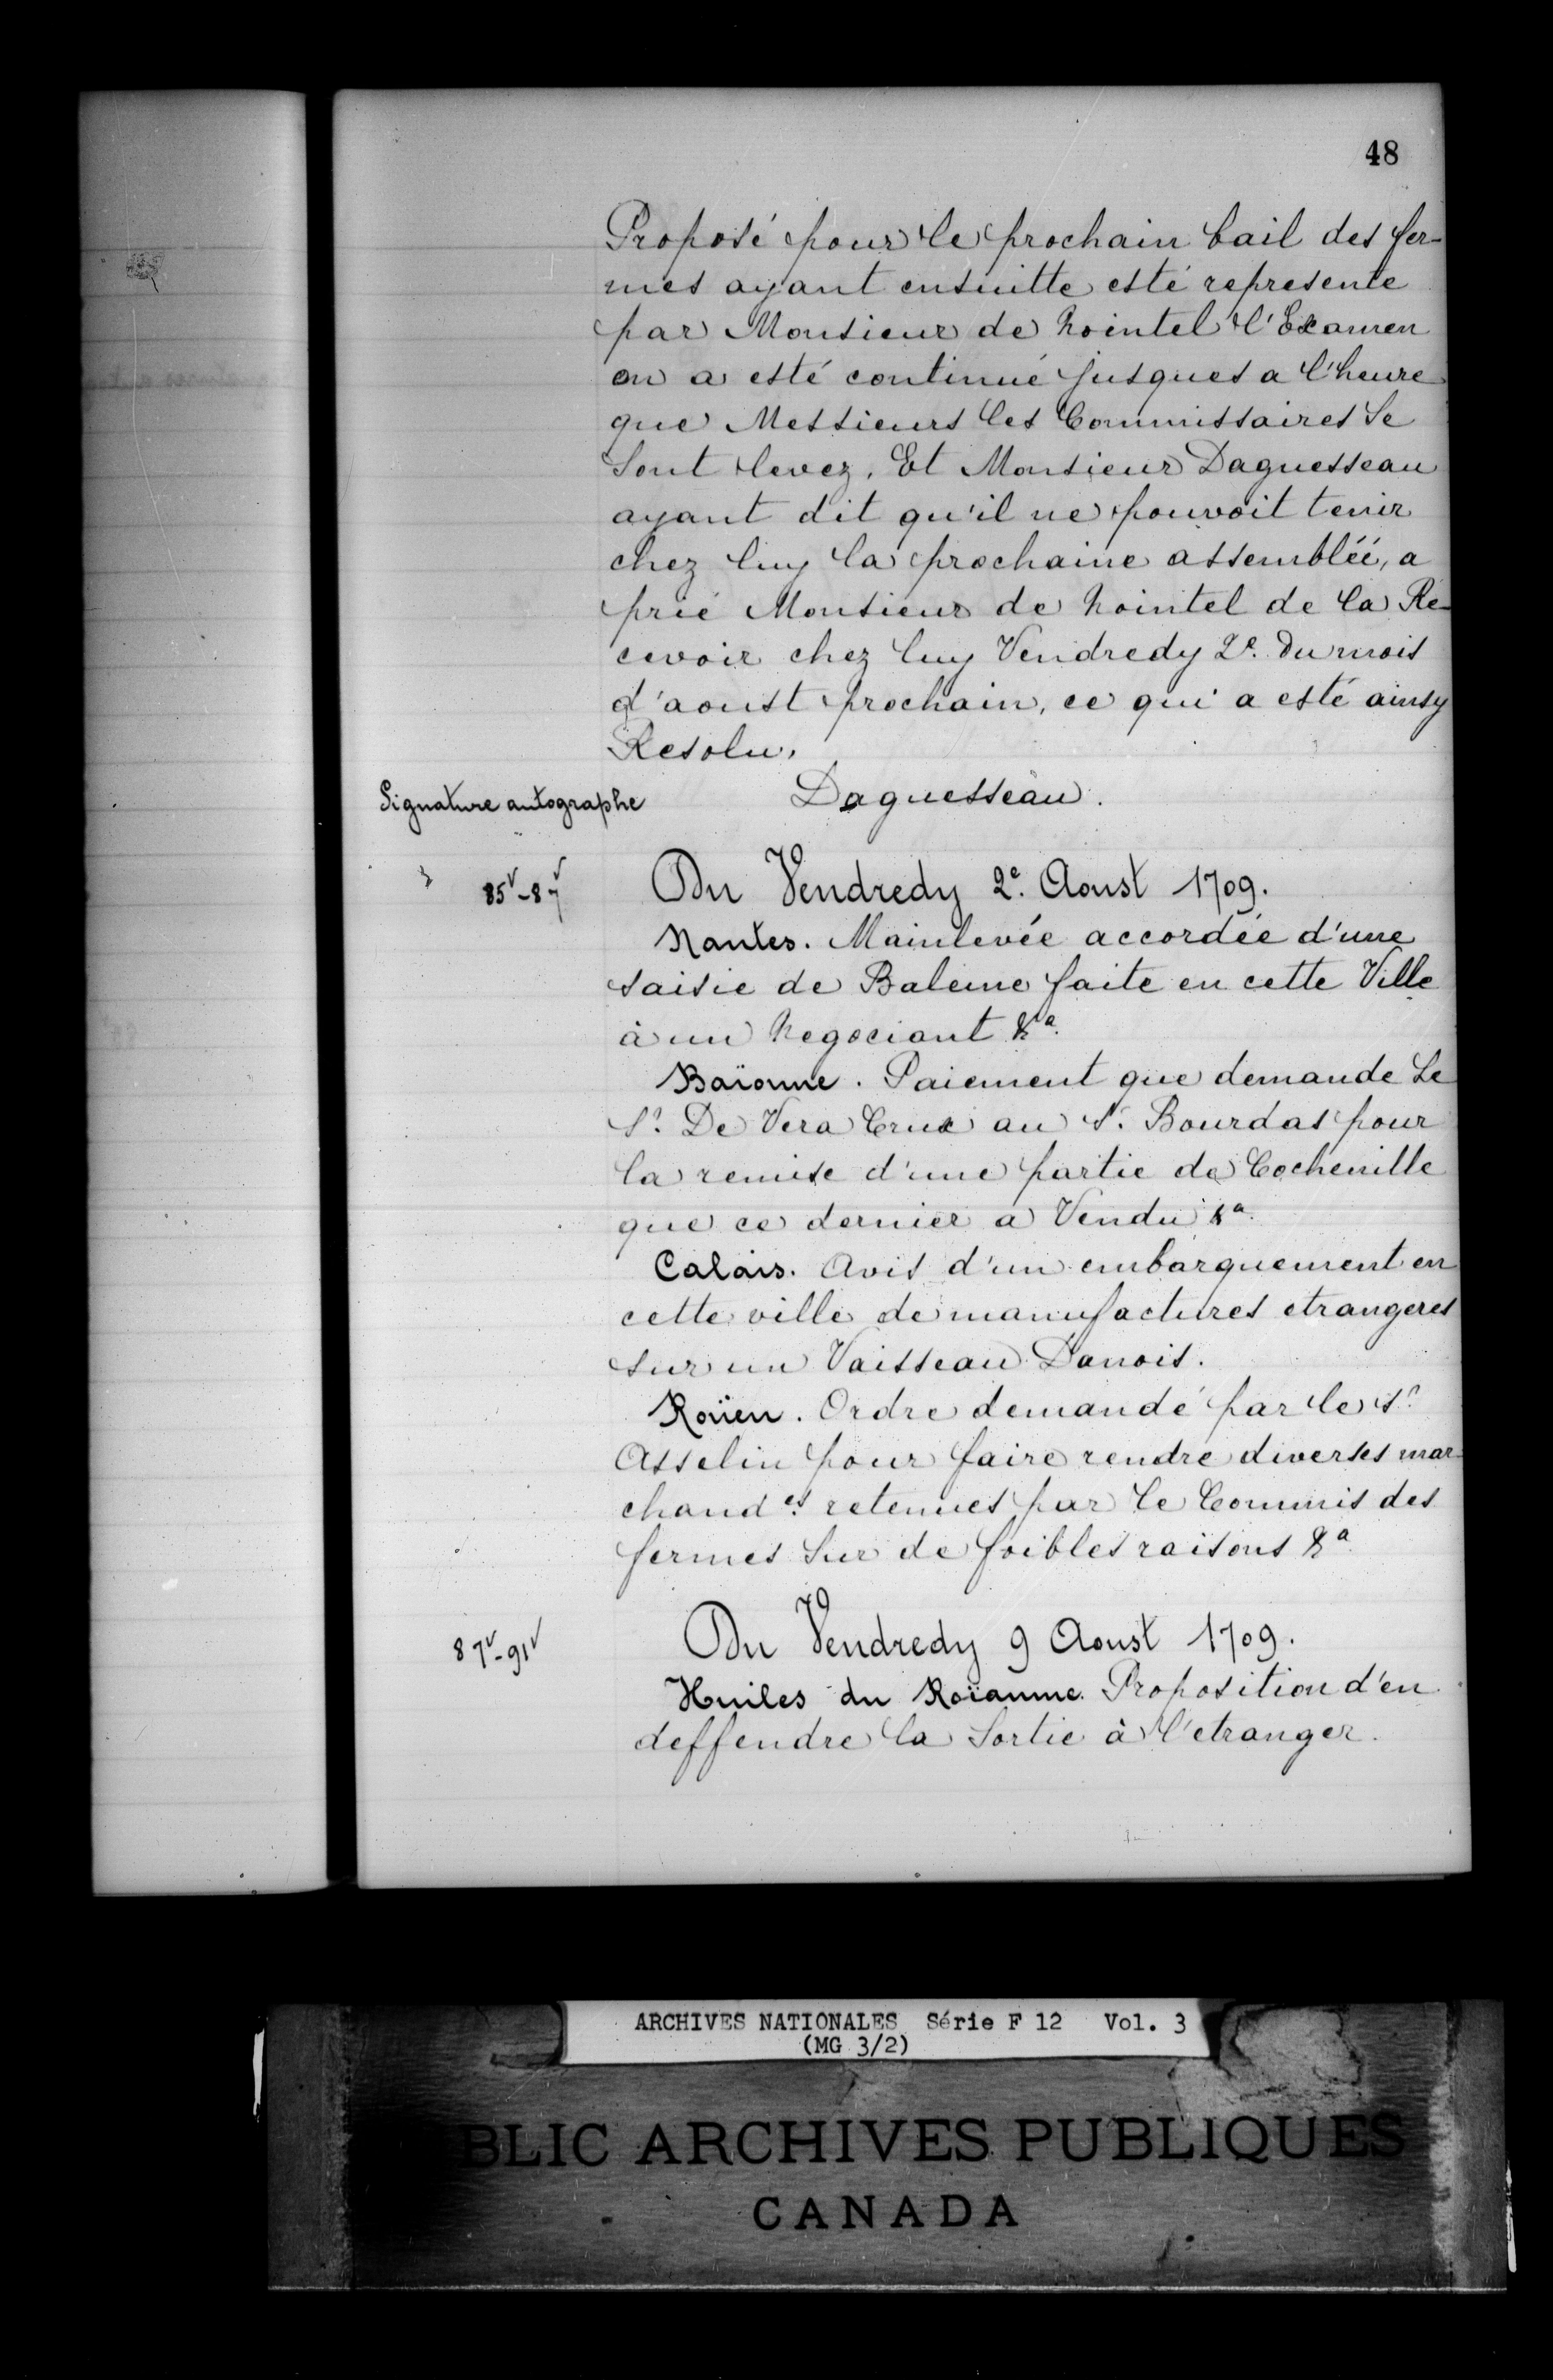 48
Proposé pour le prochain bail des fer-
mes ayant ensuitte esté represente
par Monsieur de Nointel l'Examen
en a esté continué jusques a l'heure
que Messieurs les Commissaires Se
Sont levez. Et Monsieur Daguesseau
ayant dit qu'il ne pouvoit tenir
chez luy la prochaine assemblée, a
prié Monsieur de Nointel de la Re-
cevoir chez luy Vendredy 2e. Du mois
d'aoust prochain, ce qui a esté ainsy
Resolu.
Signature autographe Daguesseau.
85v-87v Du Vendredy 2e. Aoust 1709.
Nantes. Mainlevée accordée d'une
saisie de Baleine faite en cette Ville
à un Negociant &a.
Baïonne. Paiement que demande Le
Sr. De Vera Crux au Sr. Bourdas pour
la remise d'une partie de Cochenille
que ce dernier a Vendu &a.
Calais. Avis d'un embarquement en
cette ville de manufactures etrangeres
sur un Vaisseau Danois.
Roüen. Ordre demandé par le Sr.
Asselin pour faire rendre diverses mar-
chandes. retenues par le Commis des
fermes Sur de foibles raisons &a
87v-91v Du Vendredy 9 Aoust 1709.
Huiles du Roïaume. Proposition d'en
deffendre la Sortie à l'etranger.
ARCHIVES NATIONALES Série F 12 Vol. 3
(MG 3/2)
BLIC ARCHIVES PUBLIQUES
CANADA